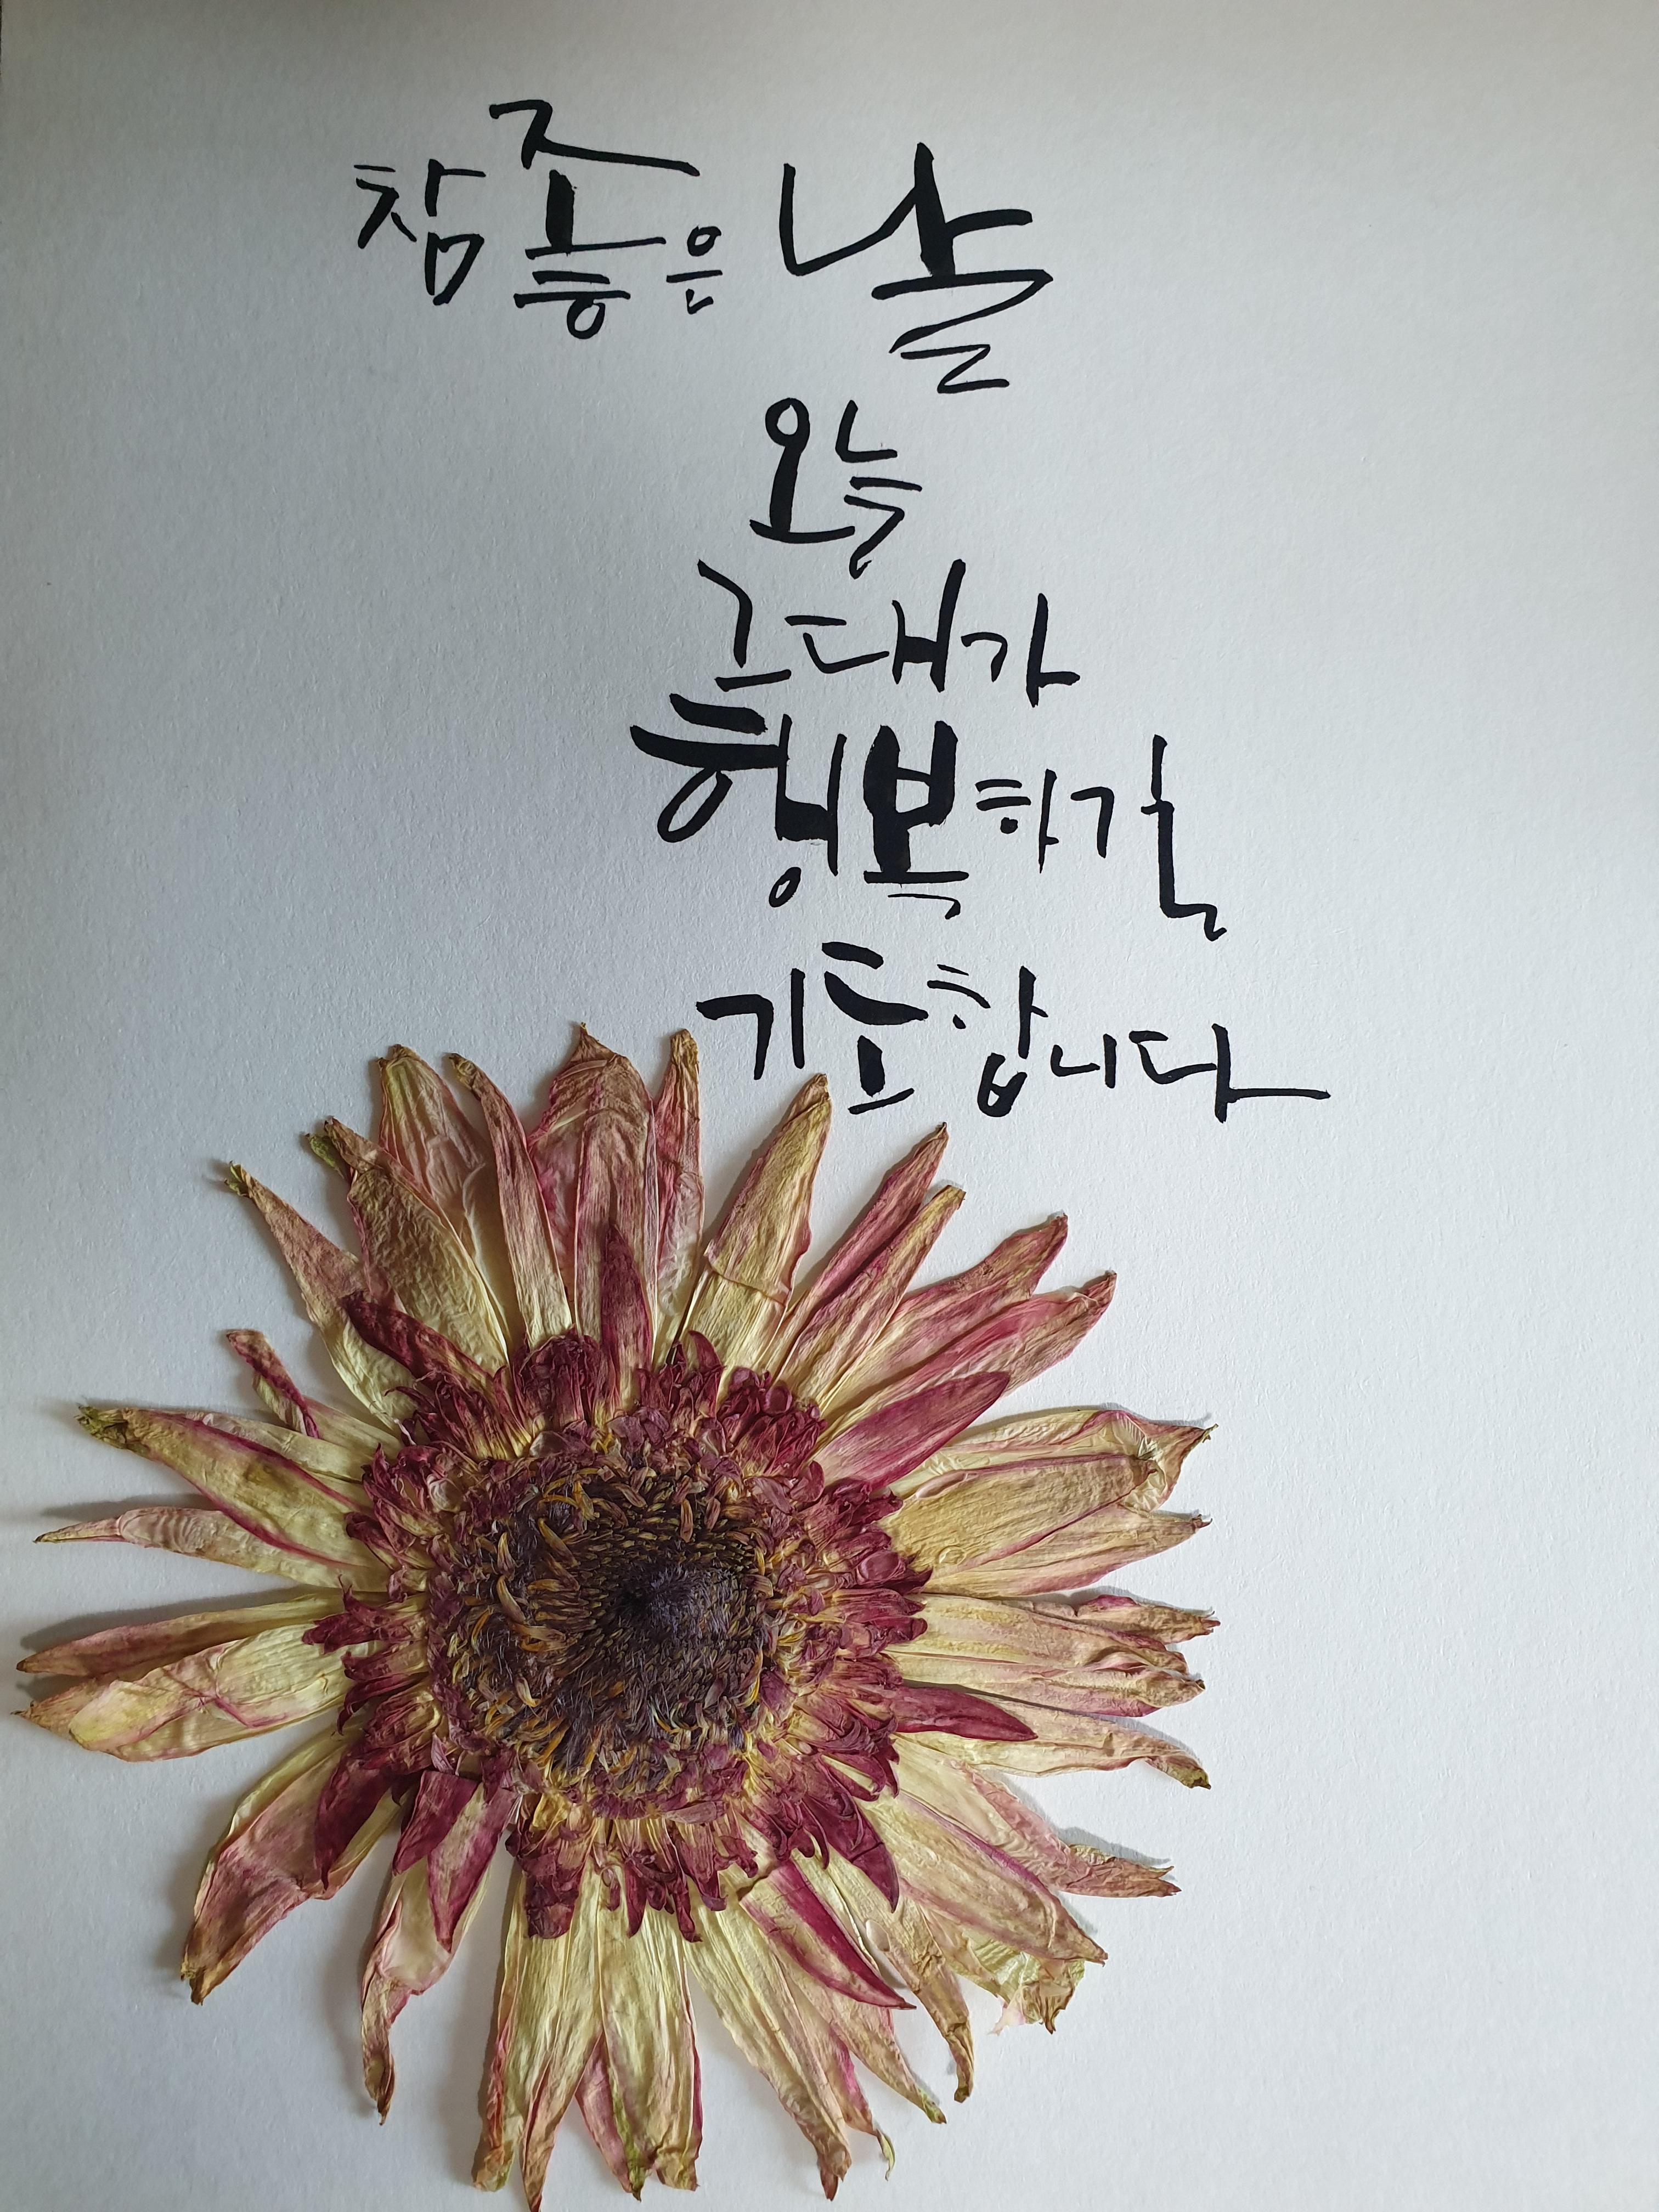 참 좋은 날
오늘
그대가
행복하길
기도합니다